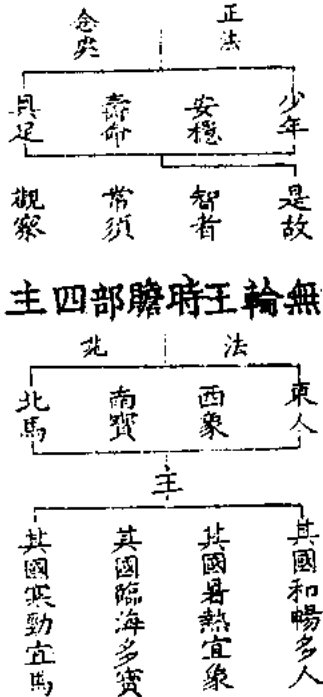 正法
念処
少年
安穩
壽命
具足
是故
智者
常須
觀察
無輪王時贍部四主
法
北
東人
西象
南寶
北馬
主
其國和暢多人
其國暑熱宜象
其國臨海多寶
其國寒勁宜馬